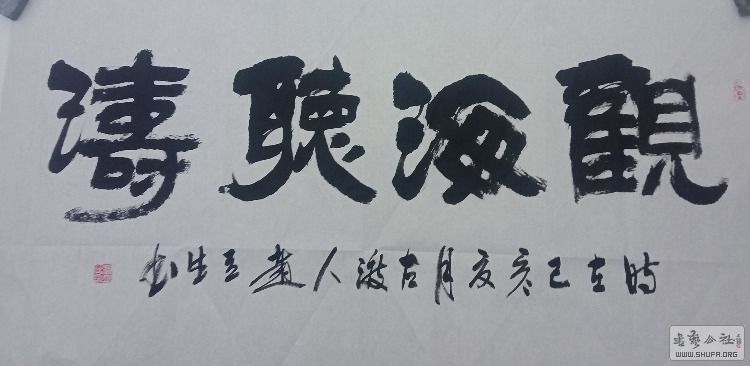 觀海聽濤
時在己亥夏月古徽人趙玉生書
書藝公社
WWW.SHUFA.ORG